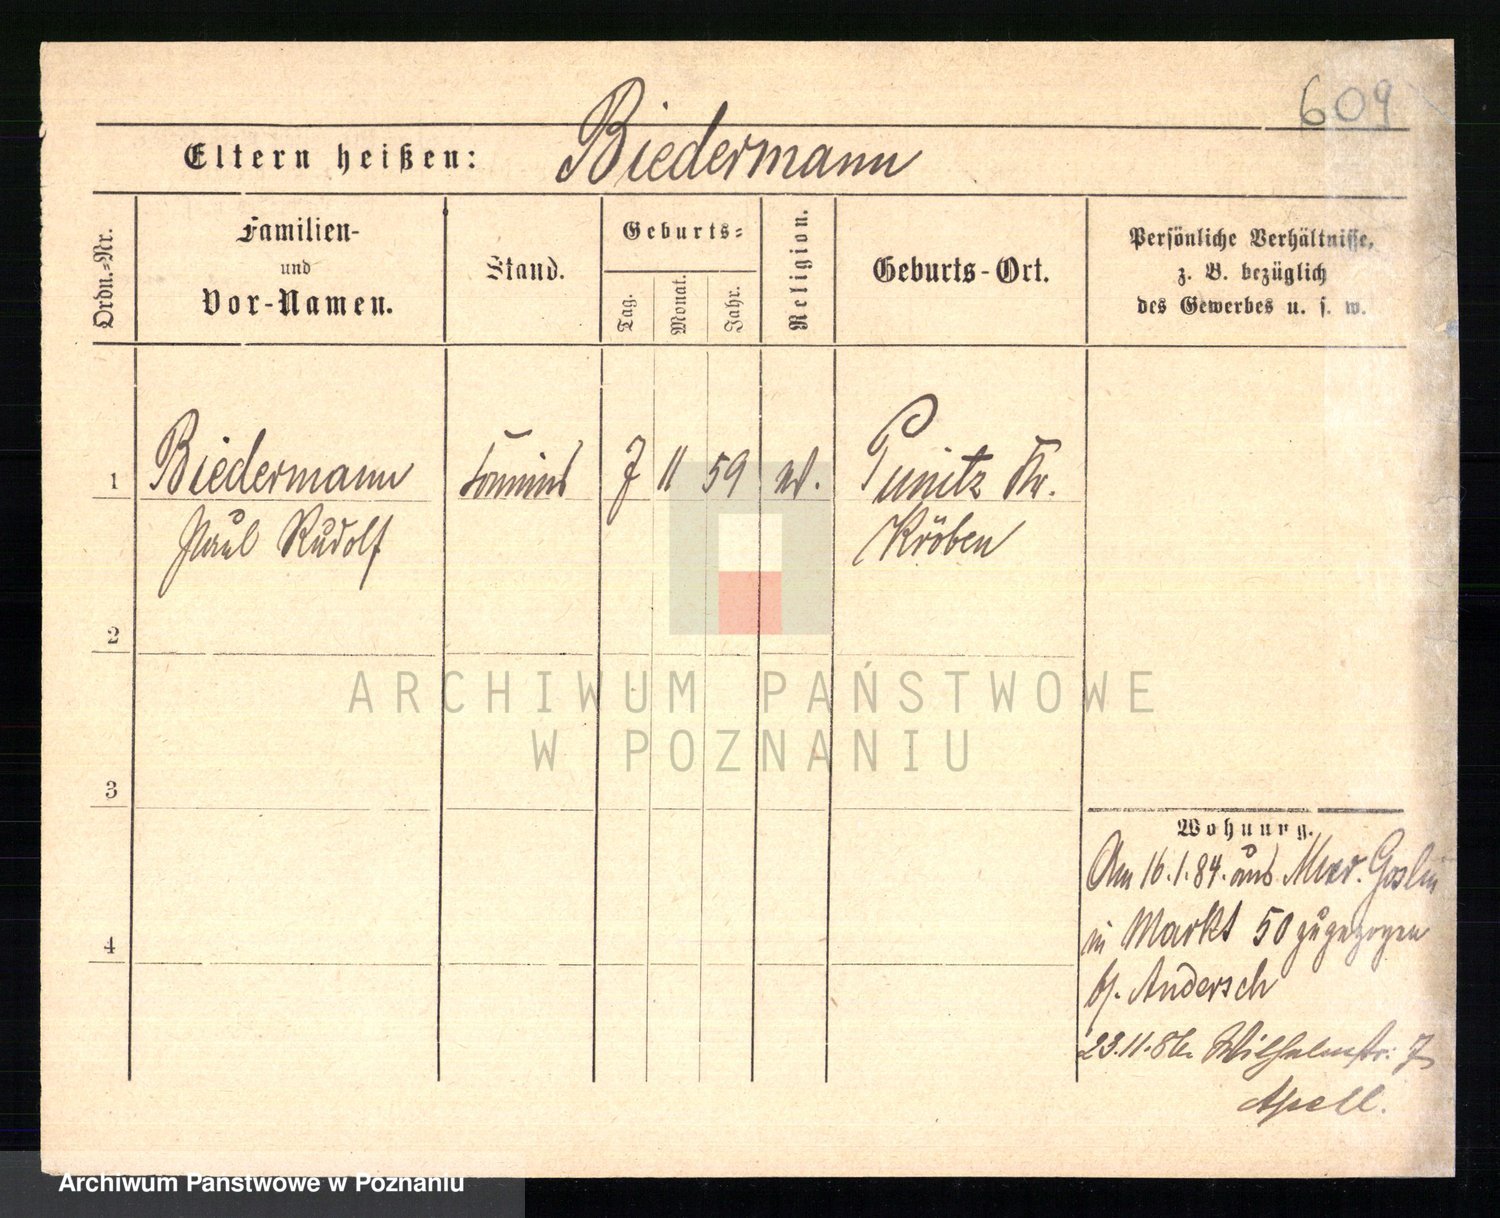 609
Eltern heißen: Biedermann
Ordn.=Nr.
Familien-
und
Vor-Namen.
Stand.
Geburts=
Tag.
Monat.
Jahr.
Religion.
Geburts-Ort.
Persönliche Verhältnisse,
z. B. bezüglich
des Gewerbes u. s. w.
1 Biedermann 7 11 59 Punitz Kr.
Paul Rudolf Kröben
2
3
4
Wohnung.
Am 16.1.84. aus Goslin
in Markt 50 zugezogen
b/. Andersch
23.11.86. Wilhelmstr. 7
Apell.
ARCHIWUM PAŃSTWOWE
W POZNANIU
Archiwum Państwowe w Poznaniu